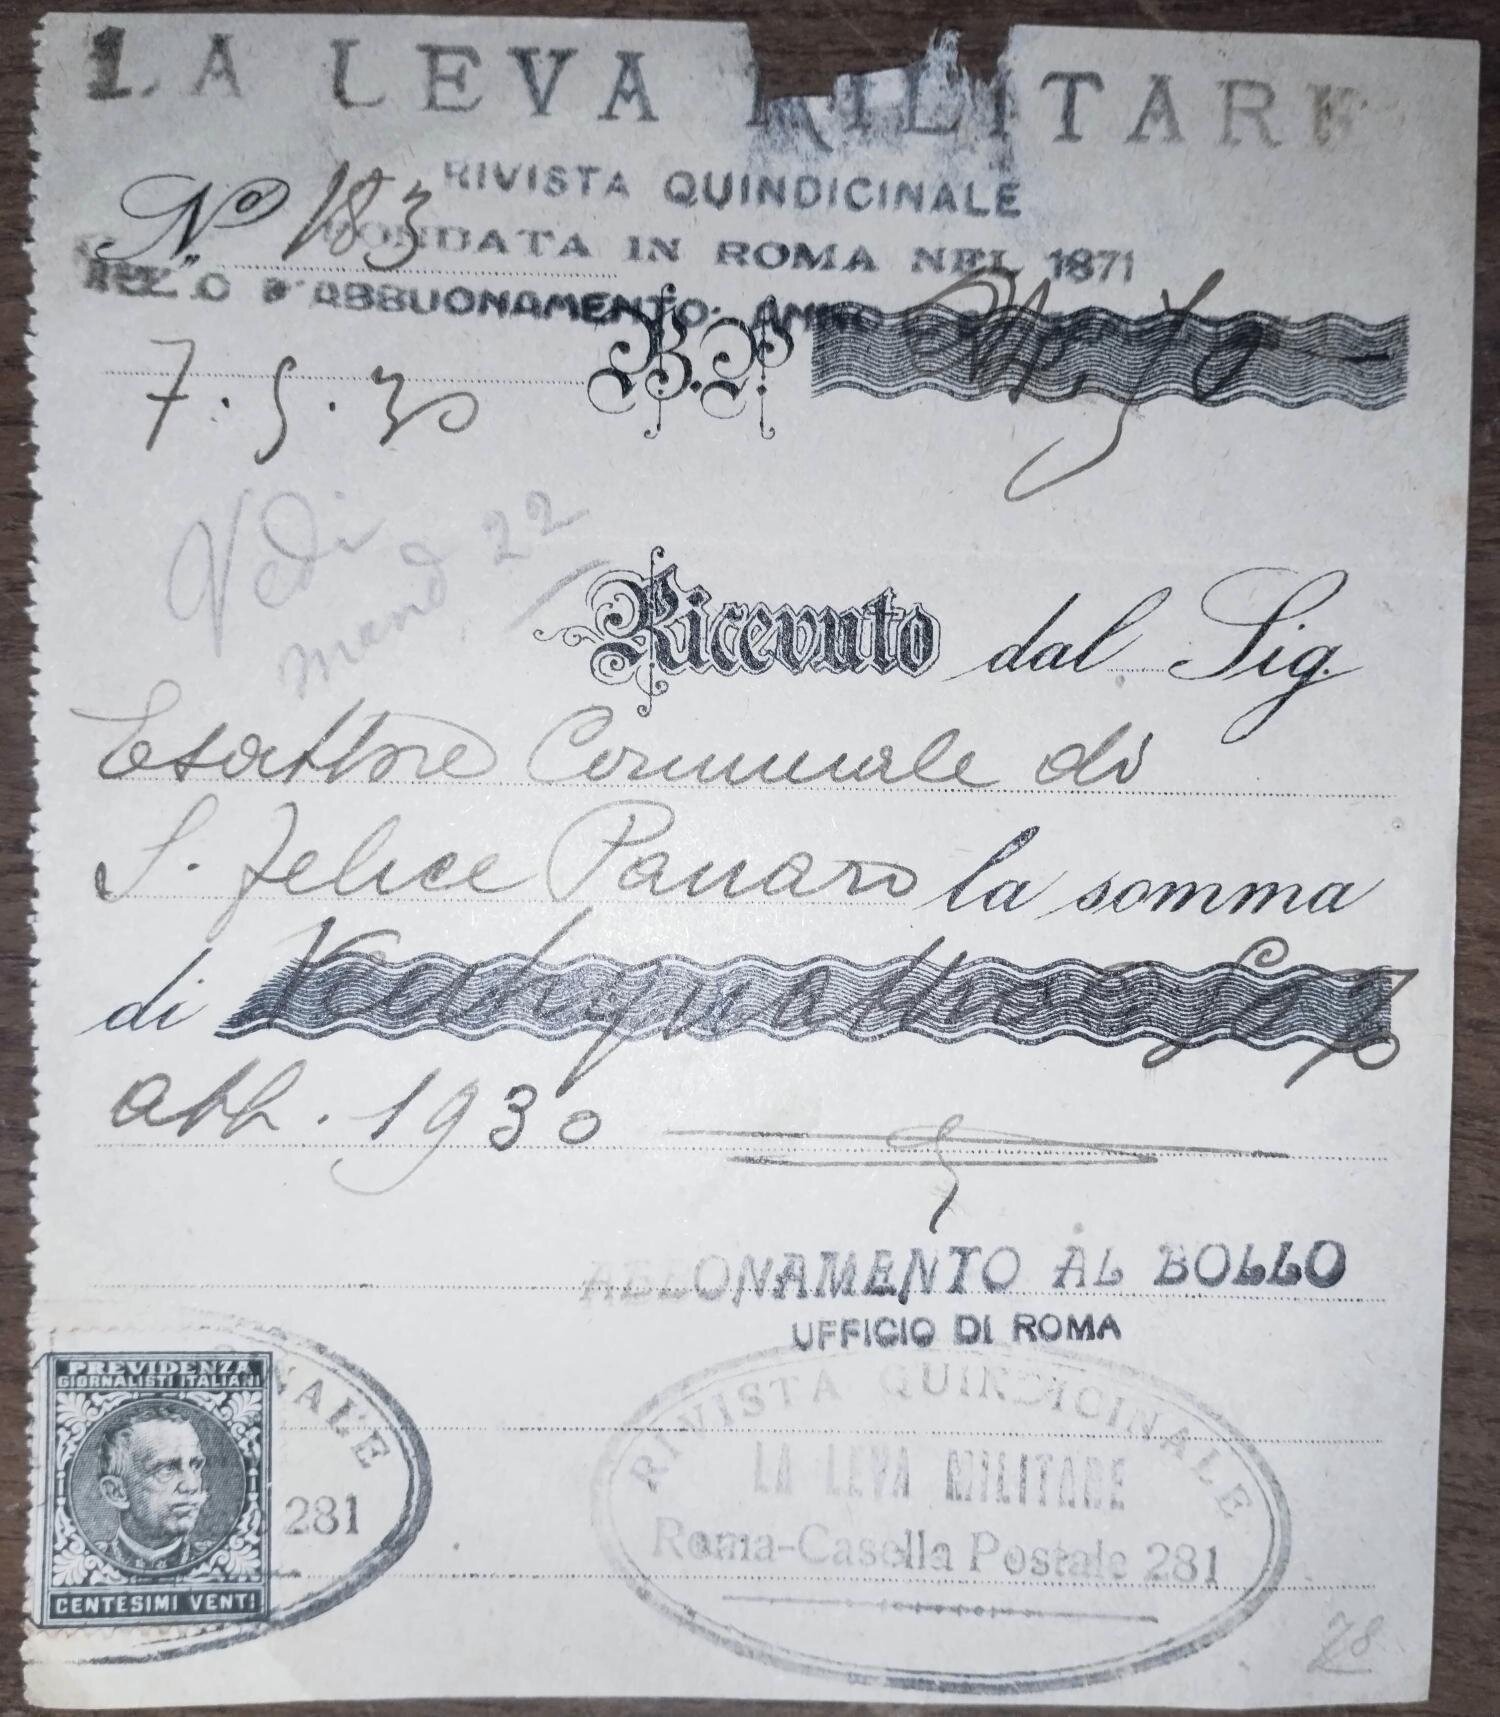 LA LEVA MILITARE
RIVISTA QUINDICINALE
No 183
FONDATA IN ROMA NEL 1871
D'ABBUONAMENTO: ANNO
7.5.30
B.P.
Vedi
mand. 22
Ricevuto dal Sig.
Esattore Comunale di
S. Felice Panaro la somma
di Ventiquattro e 50
abb. 1930
ABBONAMENTO AL BOLLO
UFFICIO DI ROMA
PREVIDENZA
GIORNALISTI ITALIANI
NALE
281
CENTESIMI VENTI
RIVISTA QUINDICINALE
LA LEVA MILITARE
Roma-Casella Postale 281
78